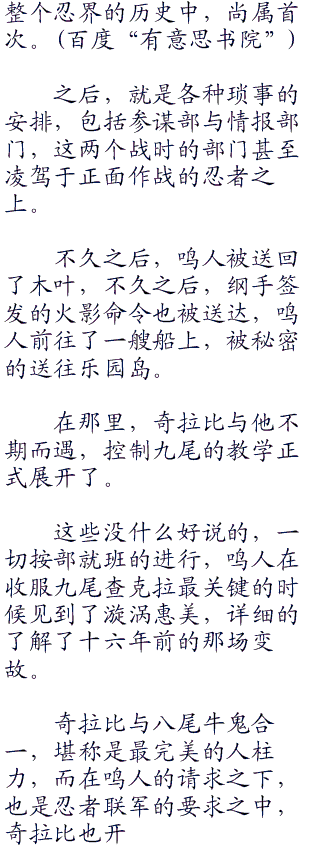 整个忍界的历史中，尚属首
次。(百度“有意思书院”)
之后，就是各种琐事的
安排，包括参谋部与情报部
门，这两个战时的部门甚至
凌驾于正面作战的忍者之
上。
不久之后，鸣人被送回
了木叶，不久之后，纲手签
发的火影命令也被送达，鸣
人前往了一艘船上，被秘密
的送往乐园岛。
在那里，奇拉比与他不
期而遇，控制九尾的教学正
式展开了。
这些没什么好说的，一
切按部就班的进行，鸣人在
收服九尾查克拉最关键的时
候见到了漩涡惠美，详细的
了解了十六年前的那场变
故。
奇拉比与八尾牛鬼合
一，堪称是最完美的人柱
力，而在鸣人的请求之下，
也是忍者联军的要求之中，
奇拉比也开